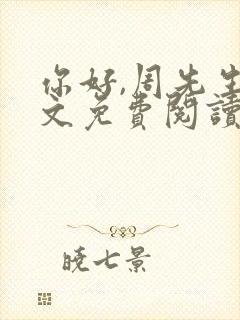 你好,周先生
文免費閱讀
曉七景